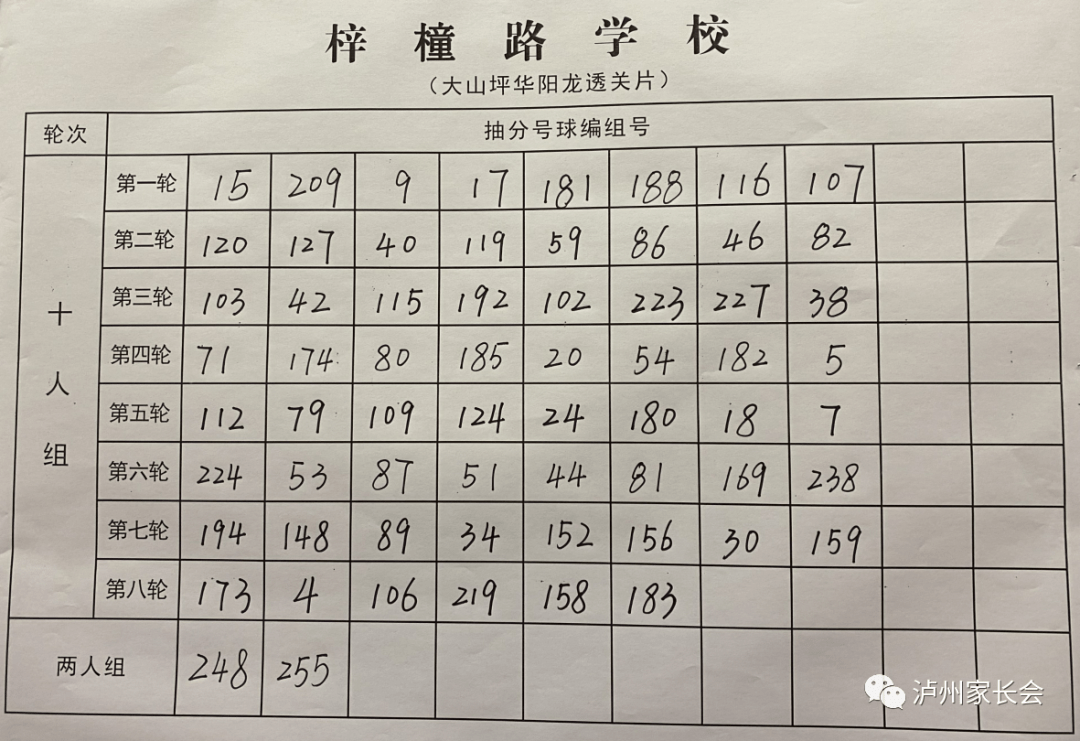 梓橦路学校
（大山坪华阳龙透关片）
轮次 抽分号球编组号
十人组
第一轮 15 209 9 17 181 188 116 107
第二轮 120 127 40 119 59 86 46 82
第三轮 103 42 115 192 102 223 227 38
第四轮 71 174 80 185 20 54 182 5
第五轮 112 79 109 124 24 180 18 7
第六轮 224 53 87 51 44 81 169 238
第七轮 194 148 89 34 152 156 30 159
第八轮 173 4 106 219 158 183
两人组 248 255
泸州家长会